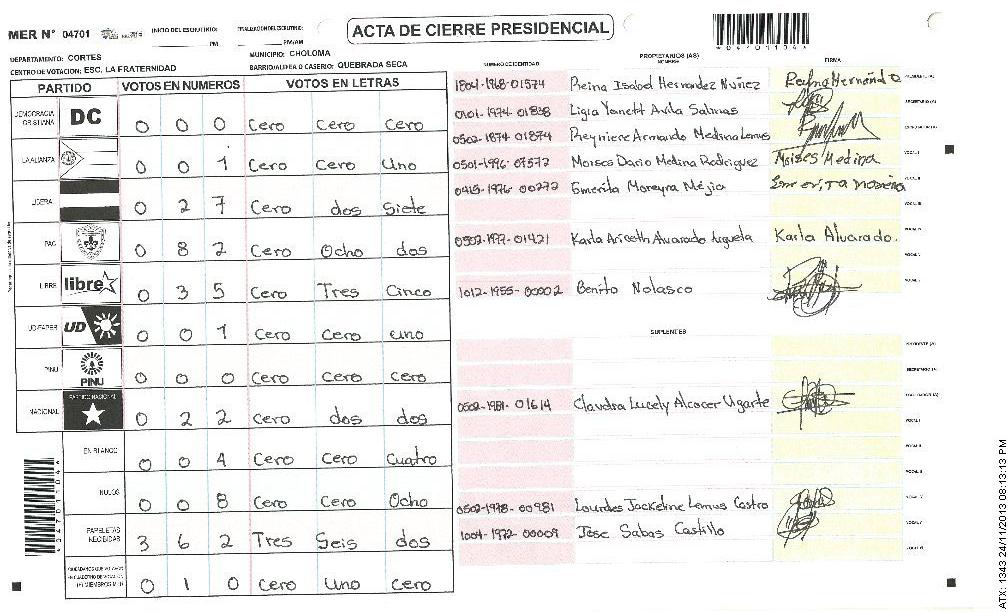 MER N° 04701
INICIO DEL ESCRUTINIO: PM
FINALIZACION DEL ESCRUTINIO: PM/AM
ACTA DE CIERRE PRESIDENCIAL
DEPARTAMENTO: CORTES
MUNICIPIO: CHOLOMA
CENTRO DE VOTACION: ESC. LA FRATERNIDAD
BARRIO/ALDEA O CASERIO: QUEBRADA SECA
PARTIDO VOTOS EN NUMEROS VOTOS EN LETRAS
DEMOCRACIA CRISTIANA DC 0 0 0 Cero Cero Cero
LA ALIANZA 0 0 1 Cero Cero Uno
LIBERAL 0 2 7 Cero dos Siete
PAC 0 8 2 Cero Ocho dos
LIBRE libre 0 3 5 Cero Tres Cinco
UD-FAPER UD 0 0 1 Cero Cero uno
PINU PINU 0 0 0 Cero Cero Cero
NACIONAL PARTIDO NACIONAL 0 2 2 Cero dos dos
EN BLANCO 0 0 4 Cero Cero Cuatro
NULOS 0 0 8 Cero Cero Ocho
PAPELETAS RECIBIDAS 3 6 2 Tres Seis dos
0 1 0 Cero Uno Cero
PROPIETARIOS (AS)
NUMERO DE IDENTIDAD NOMBRE FIRMA
1804-1968-01574 Reina Isabel Hernandez Nuñez Reina Hernández PRESIDENTE (A)
0101-1974-01838 Ligia Yanett Avila Salinas SECRETARIO (A)
0502-1874 01874 Reyniere Armando Medina Lemus ESCRUTADOR (A)
0501-1996-07572 Moises Dario Medina Rodriguez Moises Medina VOCAL I
0415-1976-00272 Emerita Moreyra Mejia VOCAL II
VOCAL III
0502-1977-01421 Karla Ariceth Alvarado Argueta Karla Alvarado. VOCAL IV
1012-1955-00002 Benito Nolasco
SUPLENTES
PRESIDENTE (A)
SECRETARIO (A)
0502-1981-01614 Claudia Lucely Alcocer Ugarte ESCRUTADOR (A)
VOCAL I
VOCAL II
VOCAL III
0502-1978-00981 Lourdes Jackeline Lemus Castro VOCAL IV
1004-1972-00009 Jose Sabas Castillo VOCAL V
ATX: 1343 24/11/2013 08:13:13 PM